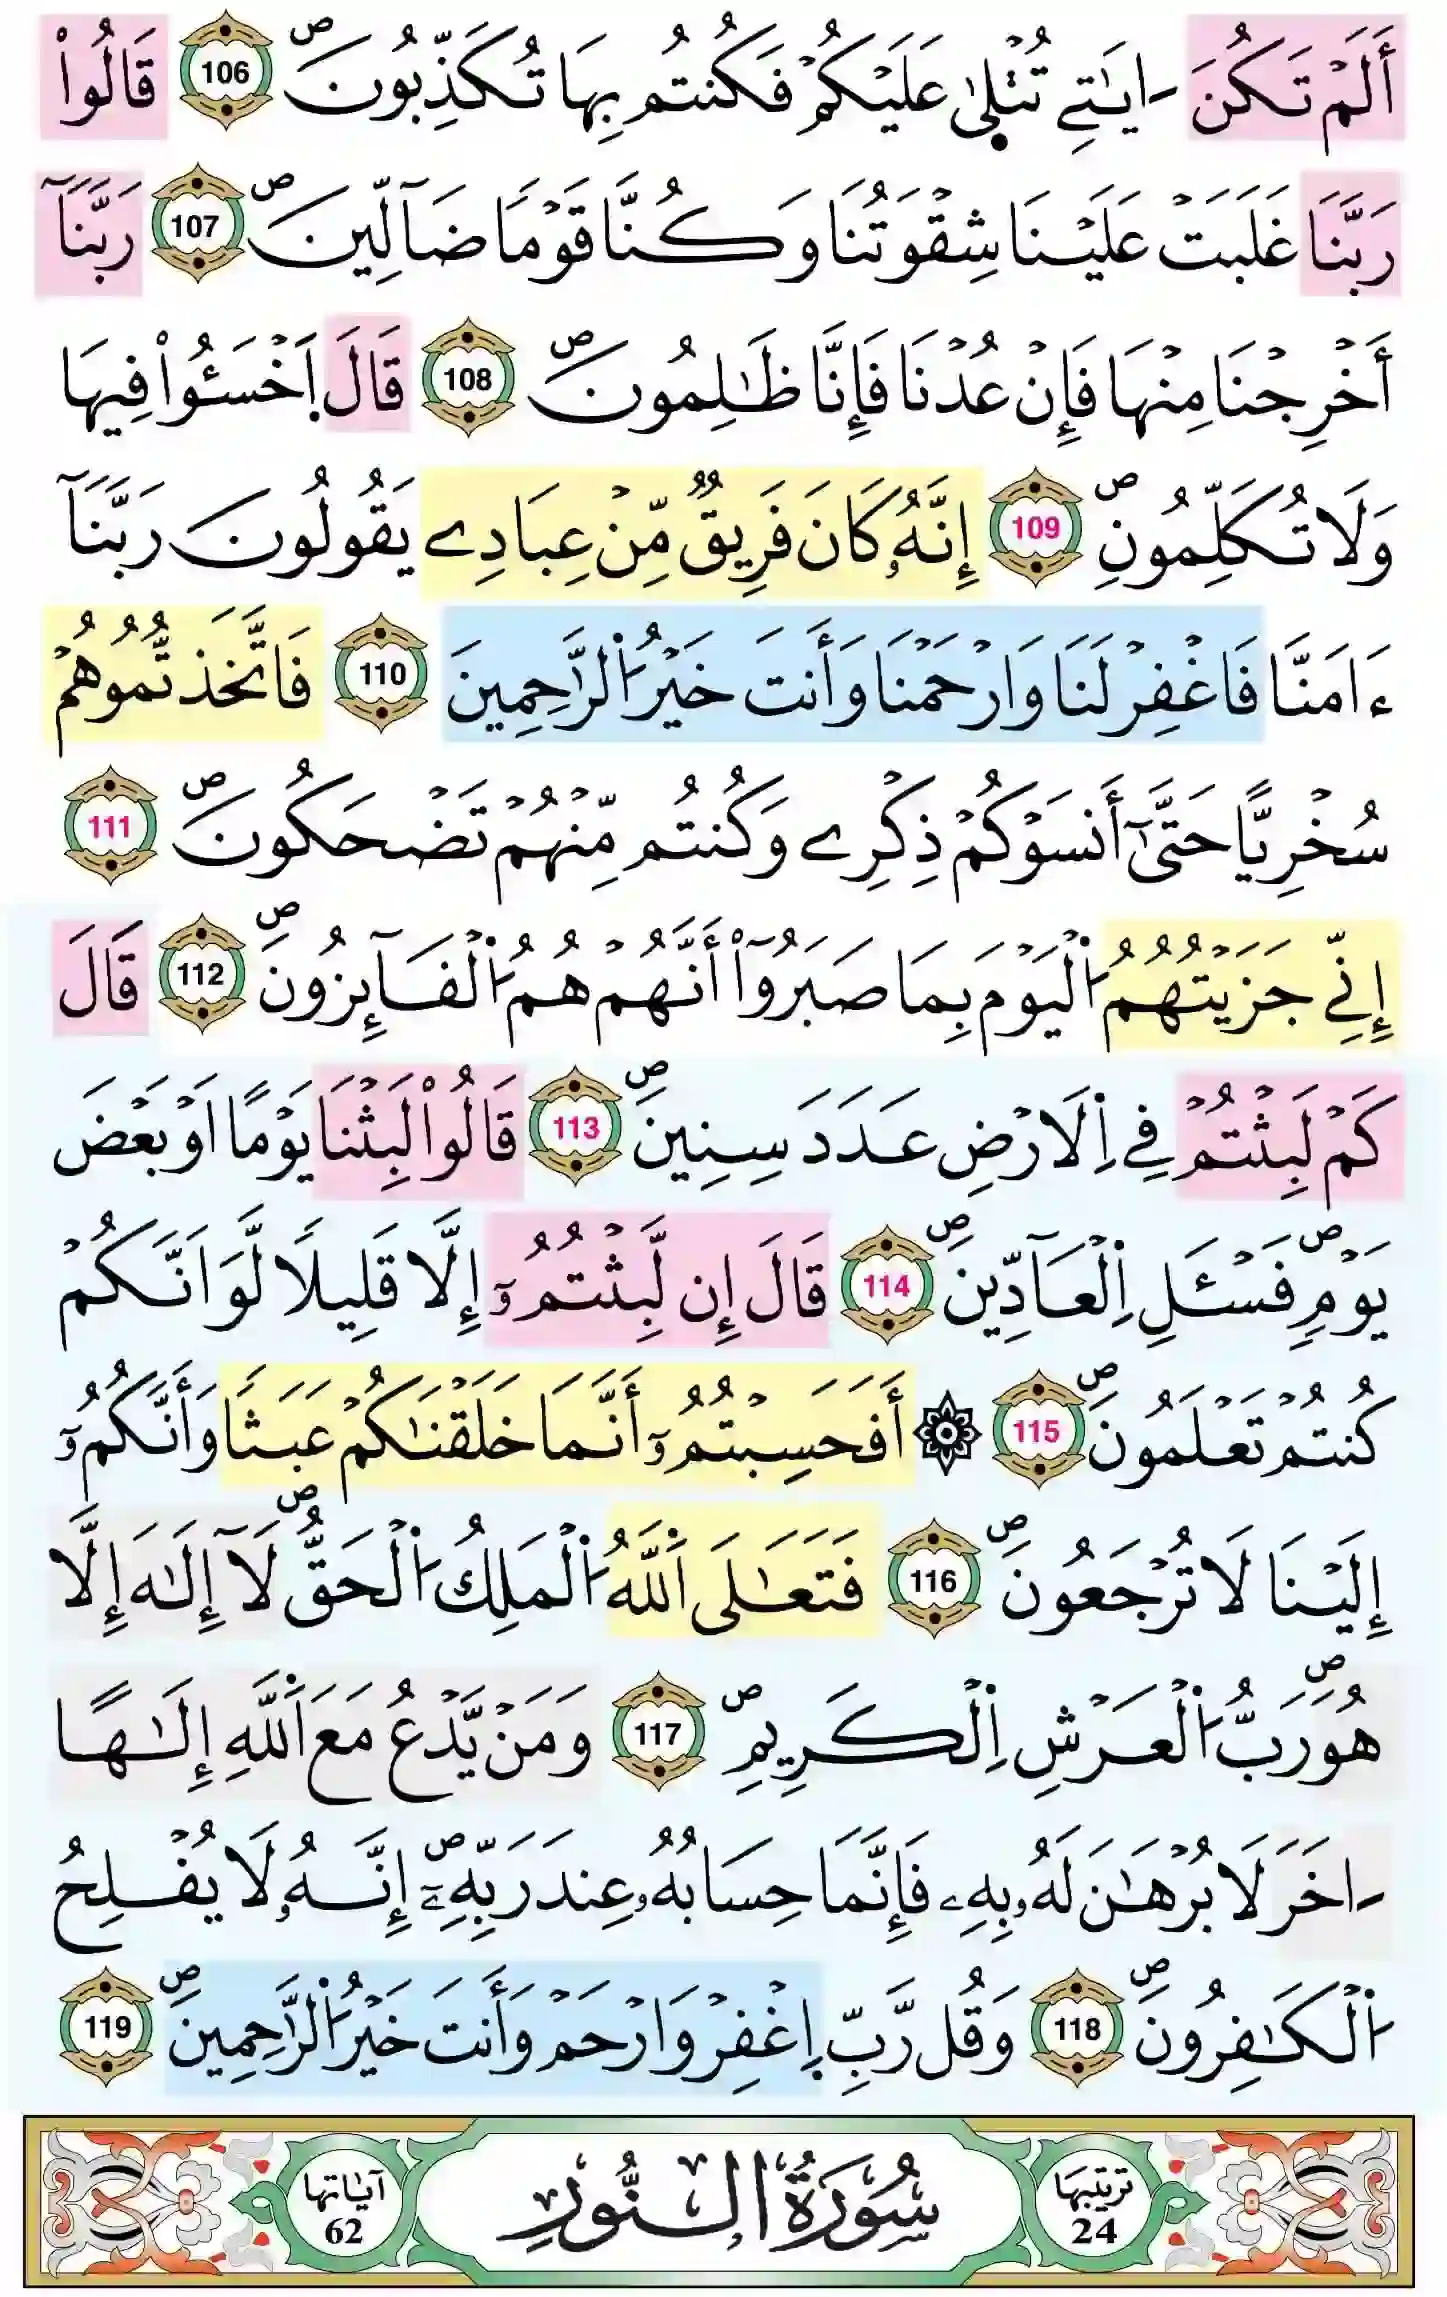 أَلَمْ تَكُنَ ـَايَٰتِے تُتْل۪ىٰ عَلَيْكُمْ فَكُنتُم بِهَا تُكَذِّبُونَۖ 106 قَالُواْ
رَبَّنَا غَلَبَتْ عَلَيْنَا شِقْوَتُنَا وَكُنَّا قَوْماٗ ضَآلِّينَۖ 107 رَبَّنَآ
أَخْرِجْنَا مِنْهَا فَإِنْ عُدْنَا فَإِنَّا ظَٰلِمُونَۖ 108 قَالَ اَ۪خْسَـُٔواْ فِيهَا
وَلَا تُكَلِّمُونِۖ 109 إِنَّهُۥ كَانَ فَرِيقٞ مِّنْ عِبَادِے يَقُولُونَ رَبَّنَآ
ءَامَنَّا فَاغْفِرْ لَنَا وَارْحَمْنَا وَأَنتَ خَيْرُ اُ۬لرَّٰحِمِينَ 110 فَاتَّخَذتُّمُوهُمْ
سُخْرِيّاً حَتَّىٰٓ أَنسَوْكُمْ ذِكْرِے وَكُنتُم مِّنْهُمْ تَضْحَكُونَۖ 111
إِنِّے جَزَيْتُهُمُ اُ۬لْيَوْمَ بِمَا صَبَرُوٓاْ أَنَّهُمْ هُمُ اُ۬لْفَآئِزُونَۖ 112 قَالَ
كَمْ لَبِثْتُمْ فِے اِ۬لَارْضِ عَدَدَ سِنِينَۖ 113 قَالُواْ لَبِثْنَا يَوْماً اَوْ بَعْضَ
يَوْمٖۖ فَسْـَٔلِ اِ۬لْعَآدِّينَۖ 114 قَالَ إِن لَّبِثْتُمُۥٓ إِلَّا قَلِيلاٗ لَّوَ اَنَّكُمْ
كُنتُمْ تَعْلَمُونَۖ 115 ۞ أَفَحَسِبْتُمُۥٓ أَنَّمَا خَلَقْنَٰكُمْ عَبَثاٗ وَأَنَّكُمُۥٓ
إِلَيْنَا لَا تُرْجَعُونَۖ 116 فَتَعَٰلَى اَ۬للَّهُ اُ۬لْمَلِكُ اُ۬لْحَقُّۖ لَآ إِلَٰهَ إِلَّا
هُوَۖ رَبُّ اُ۬لْعَرْشِ اِ۬لْكَرِيمِۖ 117 وَمَنْ يَّدْعُ مَعَ اَ۬للَّهِ إِلَٰهاً
ـاخَرَ لَا بُرْهَٰنَ لَهُۥ بِهِۦ فَإِنَّمَا حِسَابُهُۥ عِندَ رَبِّهِۦٓۖ إِنَّهُۥ لَا يُفْلِحُ
اُ۬لْكَٰفِرُونَۖ 118 وَقُل رَّبِّ اِ۪غْفِرْ وَارْحَمْ وَأَنتَ خَيْرُ اُ۬لرَّٰحِمِينَۖ 119
ترتيبها 24 سُورَةُ النُّورِ آيَاتها 62